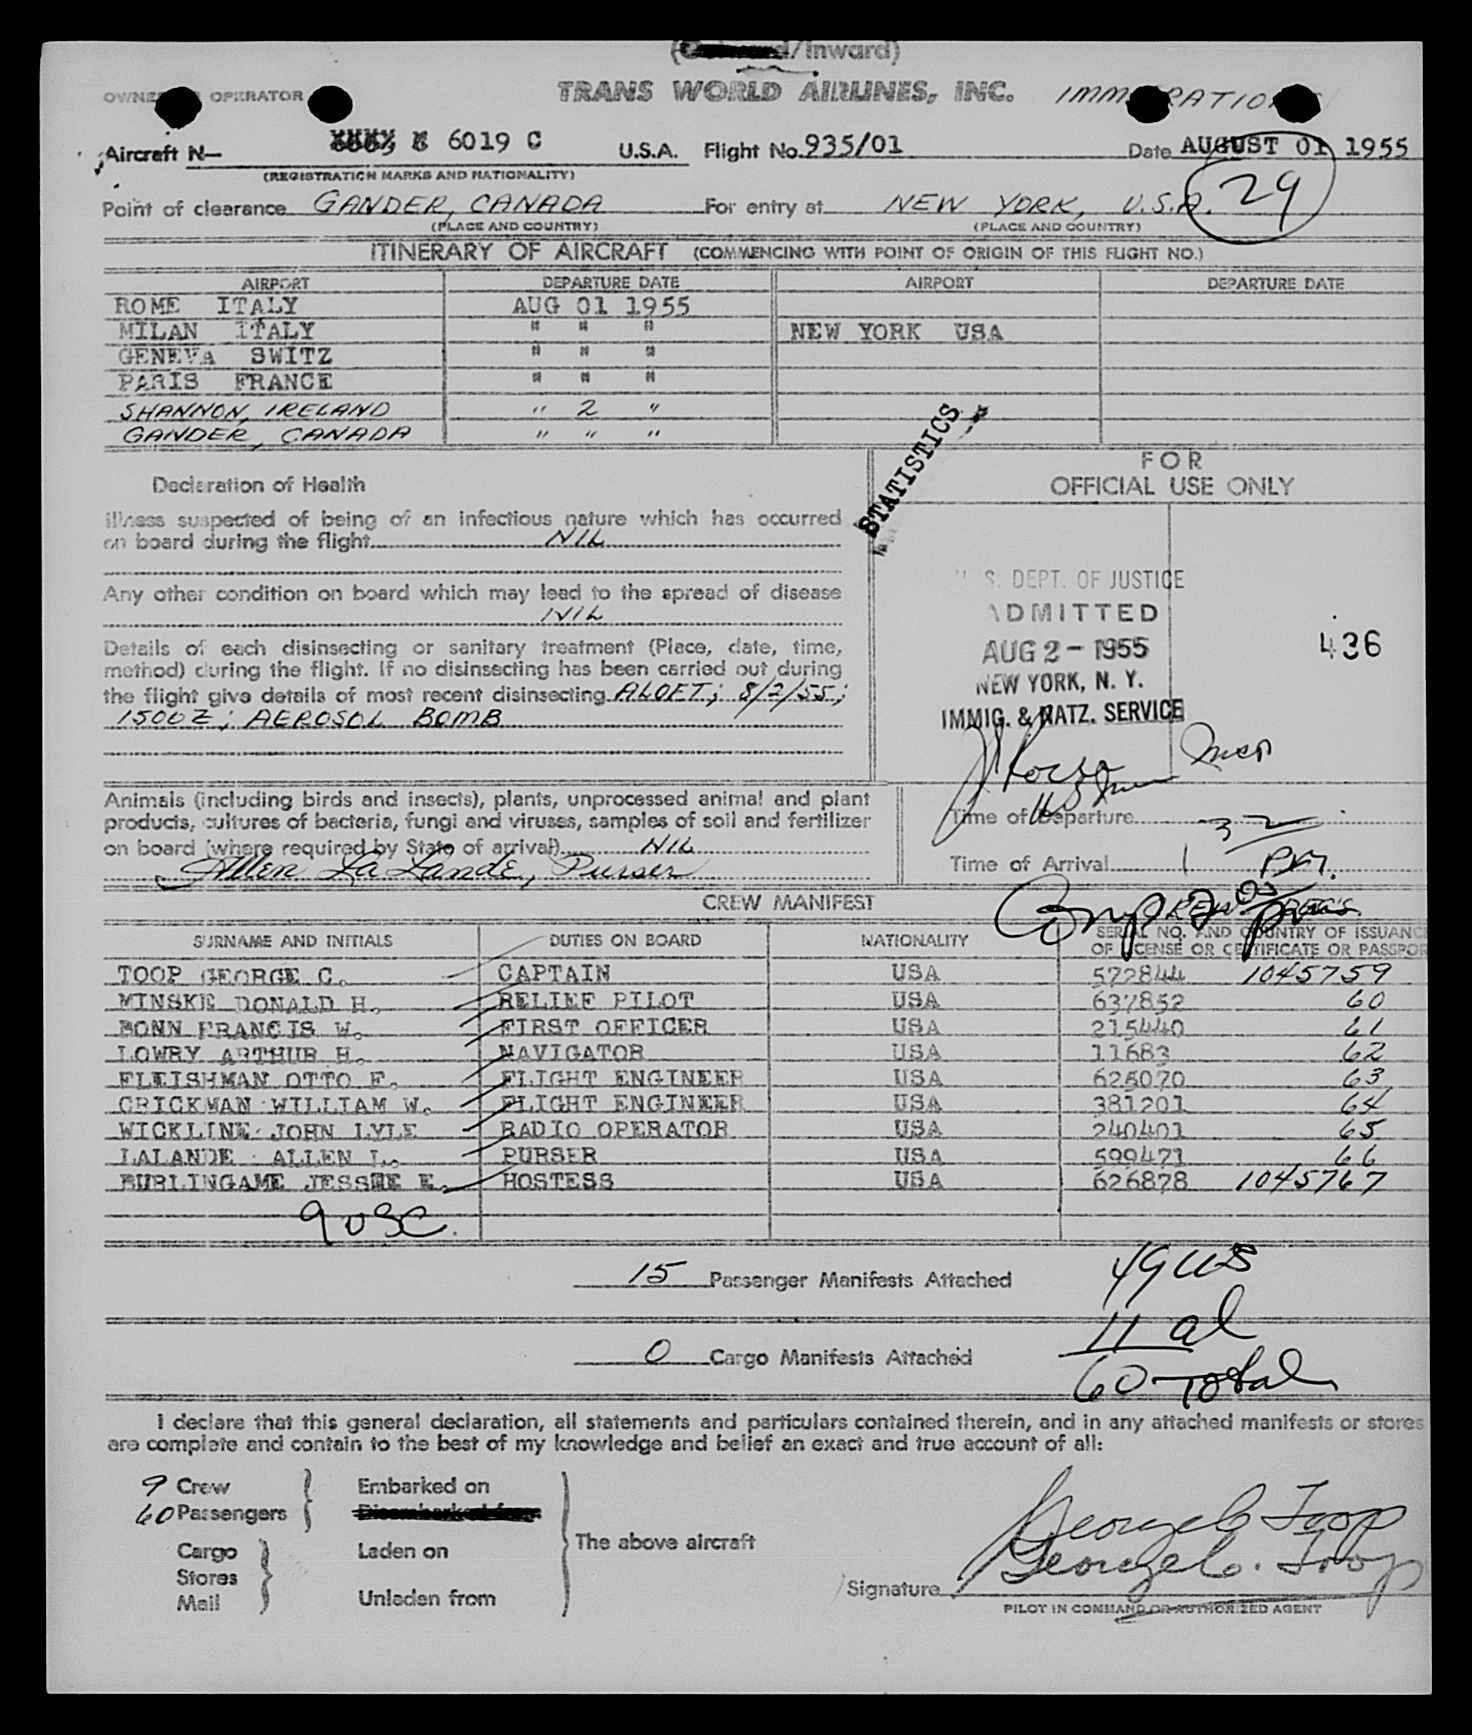 /Inward)
OPERATOR TRANS WORLD AIRLINES, INC.
Aircraft N— 6019 C U.S.A. Flight No. 935/01 Date AUGUST 01 1955
(REGISTRATION MARKS AND NATIONALITY)
Point of clearance GANDER, CANADA For entry at NEW YORK, U.S.A. 29
(PLACE AND COUNTRY) (PLACE AND COUNTRY)
ITINERARY OF AIRCRAFT (COMMENCING WITH POINT OF ORIGIN OF THIS FLIGHT NO.)
AIRPORT DEPARTURE DATE AIRPORT DEPARTURE DATE
ROME ITALY AUG 01 1955
MILAN ITALY " " " NEW YORK USA
GENEVA SWITZ " " "
PARIS FRANCE " " "
SHANNON, IRELAND " 2 "
GANDER, CANADA " " "
STATISTICS
FOR
OFFICIAL USE ONLY
Declaration of Health
Illness suspected of being of an infectious nature which has occurred
on board during the flight NIL
Any other condition on board which may lead to the spread of disease
NIL
Details of each disinsecting or sanitary treatment (Place, date, time,
method) during the flight. If no disinsecting has been carried out during
the flight give details of most recent disinsecting ALOFT; 8/2/55;
1500Z; AEROSOL BOMB
S. DEPT. OF JUSTICE
ADMITTED
AUG 2 - 1955
NEW YORK, N. Y.
IMMIG. & NATZ. SERVICE
436
Animals (including birds and insects), plants, unprocessed animal and plant
products, cultures of bacteria, fungi and viruses, samples of soil and fertilizer
on board (where required by State of arrival) NIL
Allen La Lande, Purser
Time of Departure
Time of Arrival
CREW MANIFEST
SURNAME AND INITIALS DUTIES ON BOARD NATIONALITY SERIAL NO. AND COUNTRY OF ISSUANC
OF LICENSE OR CERTIFICATE OR PASSPOR
TOOP GEORGE C. CAPTAIN USA 572844 1045759
MINSKE DONALD H. RELIEF PILOT USA 637852 60
BONN FRANCIS W. FIRST OFFICER USA 215440 61
LOWRY ARTHUR H. NAVIGATOR USA 11683 62
FLEISHMAN OTTO F. FLIGHT ENGINEER USA 626070 63
CRICKMAN WILLIAM W. FLIGHT ENGINEER USA 381201 64
WICKLINE JOHN LYLE RADIO OPERATOR USA 240401 65
LALANDE ALLEN L. PURSER USA 599471 66
BURLINGAME JESSIE E. HOSTESS USA 626878 1045767
9 USC.
15 Passenger Manifests Attached
49 US
11 al
0 Cargo Manifests Attached
60 Total
I declare that this general declaration, all statements and particulars contained therein, and in any attached manifests or stores
are complete and contain to the best of my knowledge and belief an exact and true account of all:
9 Crew Embarked on
60 Passengers
The above aircraft
Cargo Laden on
Stores
Mail Unladen from
George C. Toop
George C. Toop
Signature
PILOT IN COMMAND OR AUTHORIZED AGENT